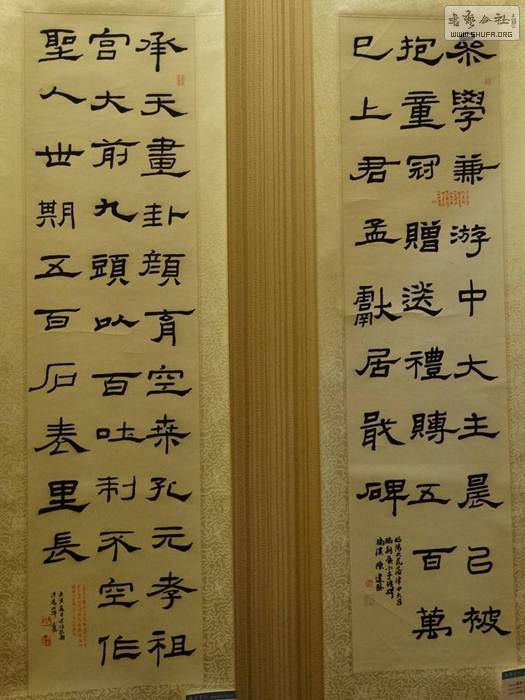 書艺公社
WWW.SHUFA.ORG
叅學兼游中大主晨已被
抱童冠贈送禮賻五百萬
巳上君孟獻居戢碑
承天畫卦顏育空桑孔元孝祖
宮大前九頭以百吐制不空作
聖人世期五百石表里長